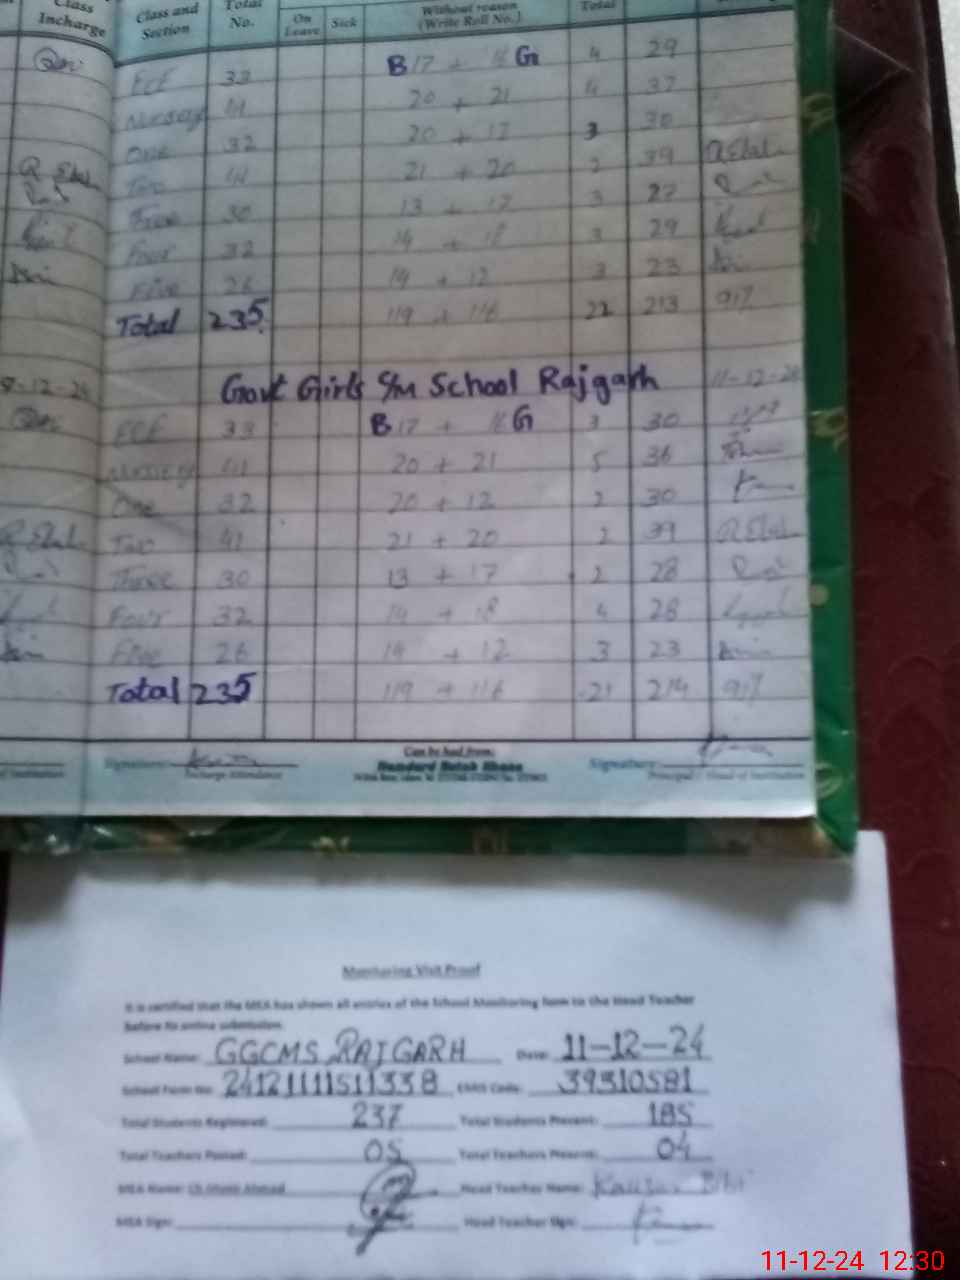 Class Incharge Class and Section Total No. On Leave Sick Without reason (Write Roll No.) Total
ECE 33 B 17 + 16 G 4 29
Nursery 41 20 + 21 4 37
One 32 20 + 12 3 30
Two 41 21 + 20 2 39
Three 30 13 + 17 3 27
Four 32 14 + 18 3 29
Five 26 14 + 12 3 23
Total 235 119 + 116 22 213 917
12-24 Govt Girls S/M School Rajgarh 11-12-24
ECE 33 B 17 + 16 G 3 30
Nursery 41 20 + 21 5 36
One 32 20 + 12 2 30
Two 41 21 + 20 2 39
Three 30 13 + 17 2 28
Four 32 14 + 18 4 28
Five 26 14 + 12 3 23
Total 235 119 + 116 21 214 917
Can be had from:
Signature: Hamdard Kutab Khana Signature:
Incharge Attendance Principal / Head of Institution
Monitoring Visit Proof
It is certified that the MEA has shown all entries of the School Monitoring form to the Head Teacher
before its online submission.
School Name: GGCMS RAJGARH Date: 11-12-24
School Form No: 24121111511338 EMIS Code: 39310581
Total Students Registered: 237 Total Students Present: 185
Total Teachers Posted: 05 Total Teachers Present: 04
MEA Name: Ahmad Head Teacher Name: Kausar Bibi
MEA Sign: Head Teacher Sign:
11-12-24 12:30